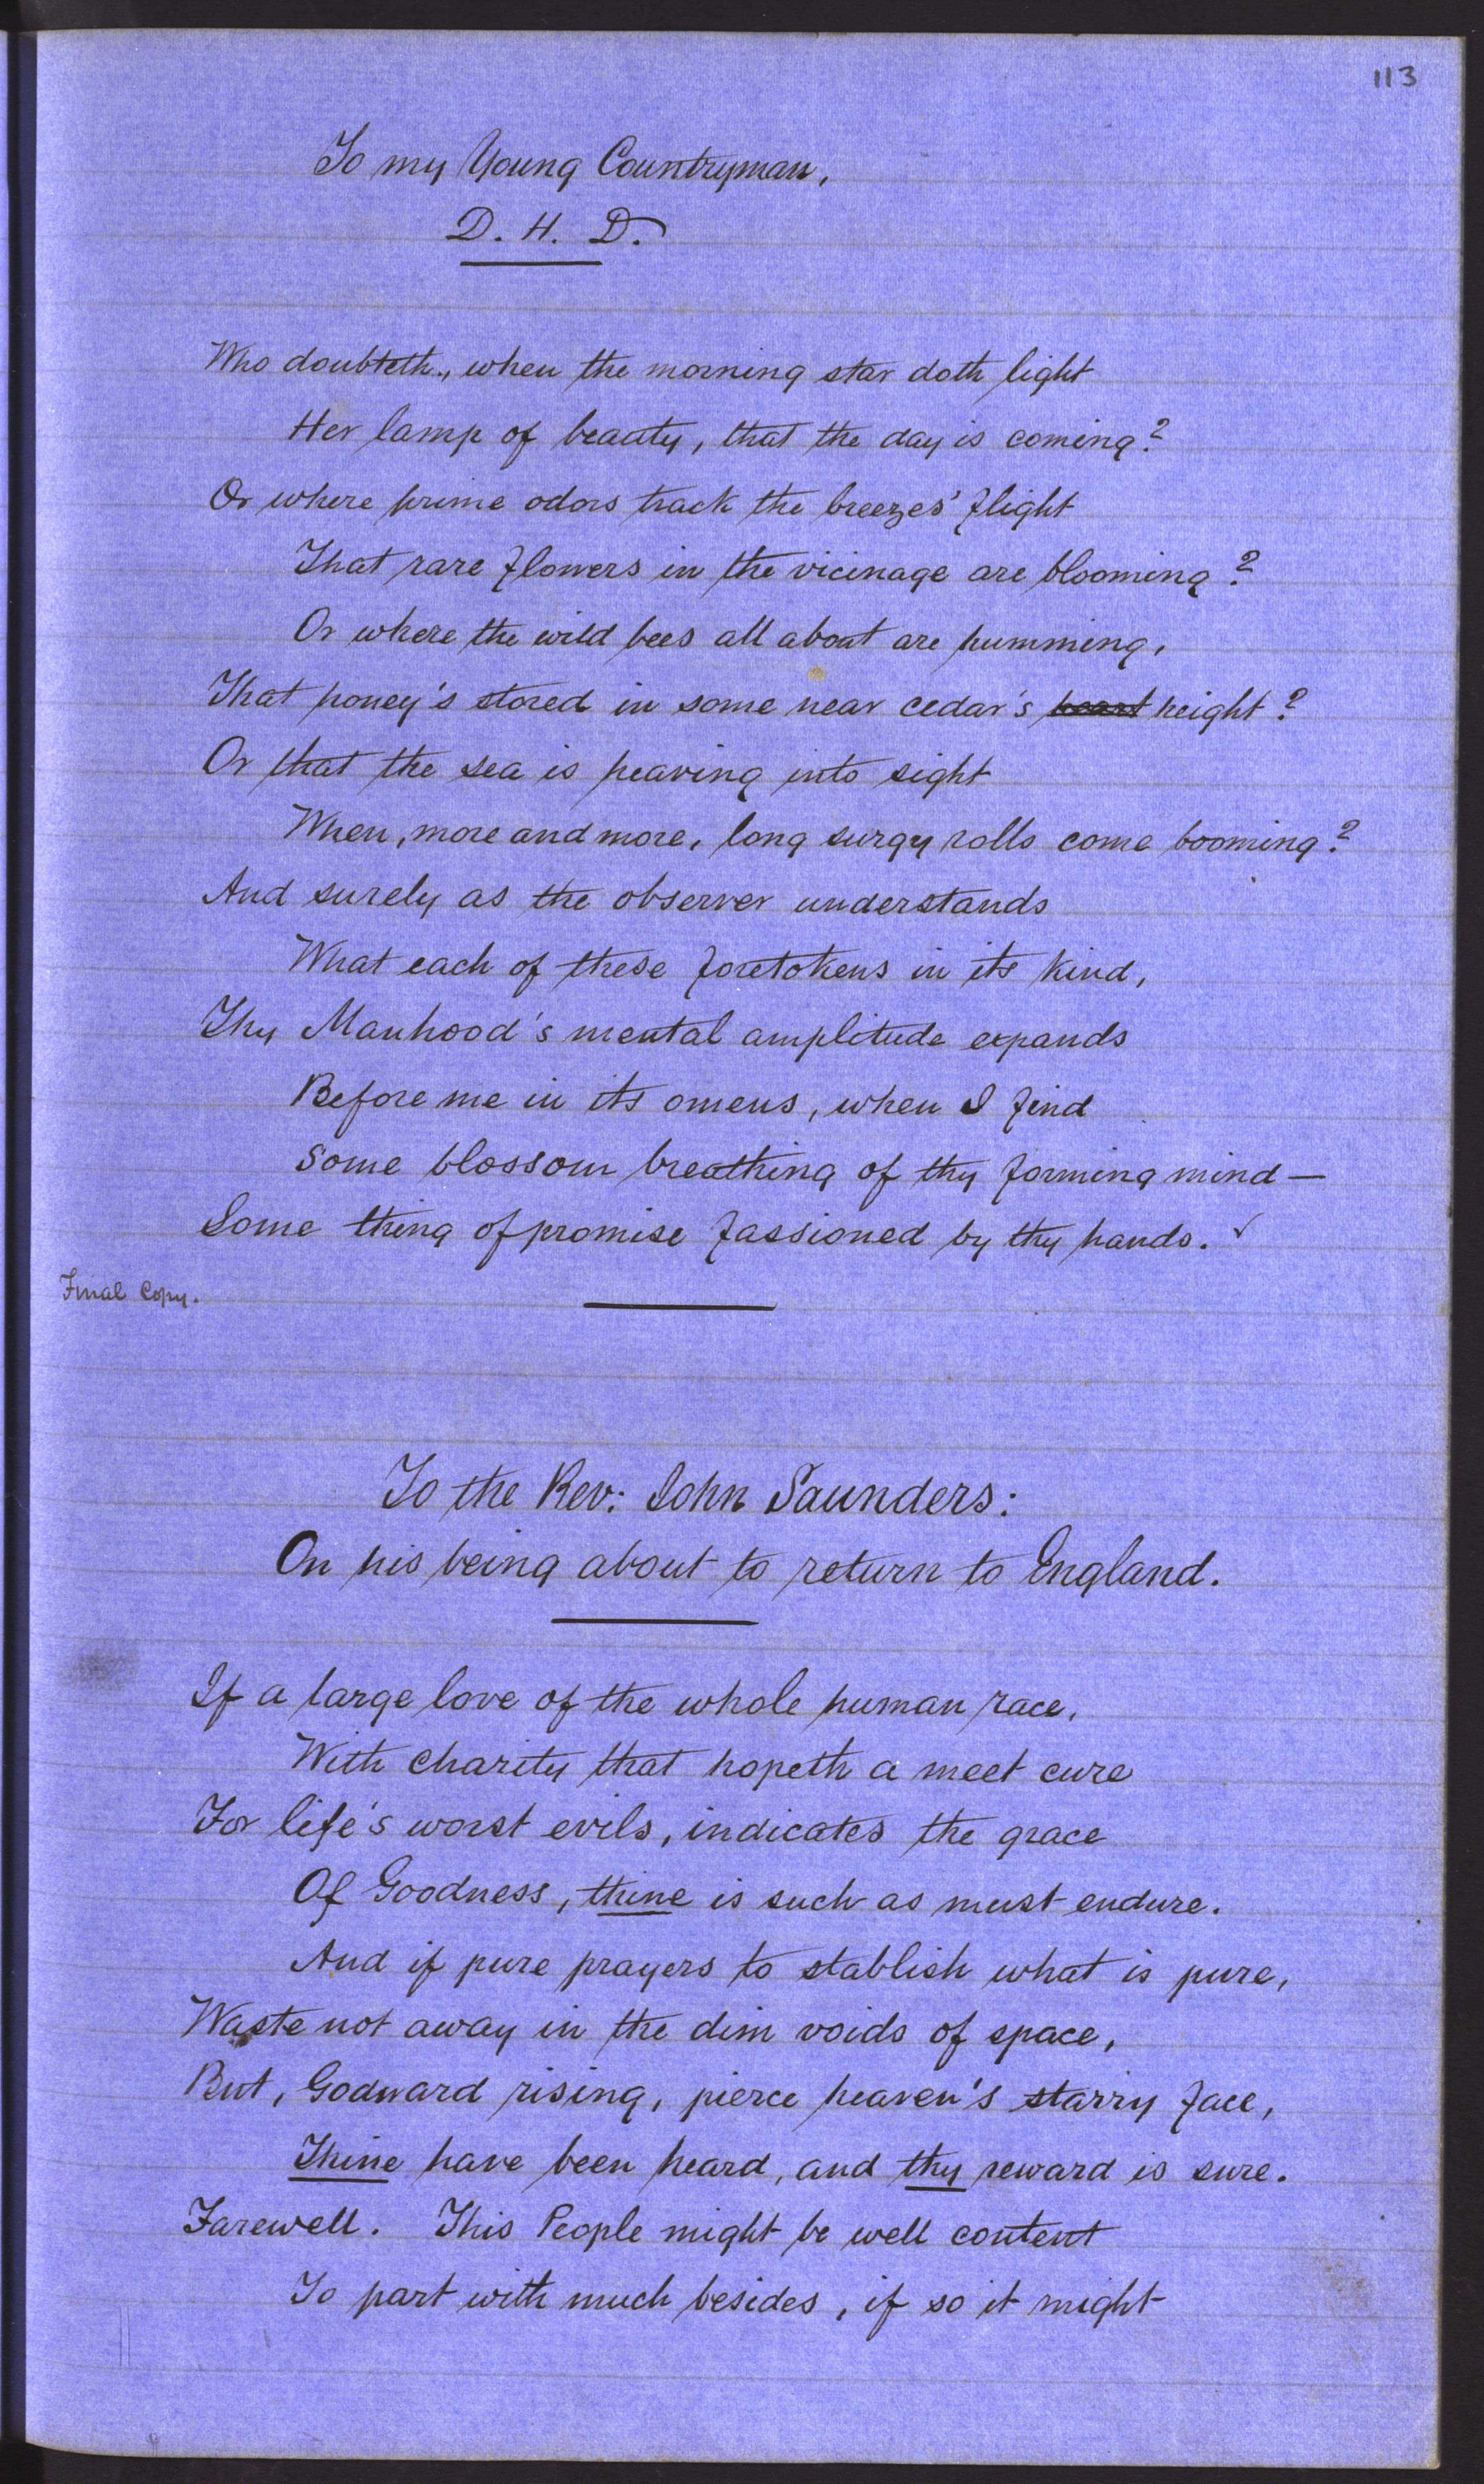 113
To my Young Countryman,
D. H. D.
Who doubteth, when the morning star doth light
Her lamp of beauty, that the day is coming?
Or where prime odors track the breezes' flight
That rare flowers in the vicinage are blooming?
Or where the wild bees all about are humming,
That honey's stored in some near cedar's heart height?
Or that the sea is heaving into sight
When, more and more, long surgy rolls come booming?
And surely as the observer understands
What each of these foretokens in its kind,
Thy Manhood's mental amplitude expands
Before me in its omens, when I find
Some blossom breathing of thy forming mind—
Some thing of promise fassioned by thy hands. ✓
Final Copy.
To the Rev: John Saunders:
On his being about to return to England.
If a large love of the whole human race,
With charity that hopeth a meet cure
For life's worst evils, indicates the grace
Of Goodness, thine is such as must endure.
And if pure prayers to stablish what is pure,
Waste not away in the dim voids of space,
But, Godward rising, pierce heaven's starry face,
Thine have been heard, and thy reward is sure.
Farewell. This People might be well content
To part with much besides, if so it might